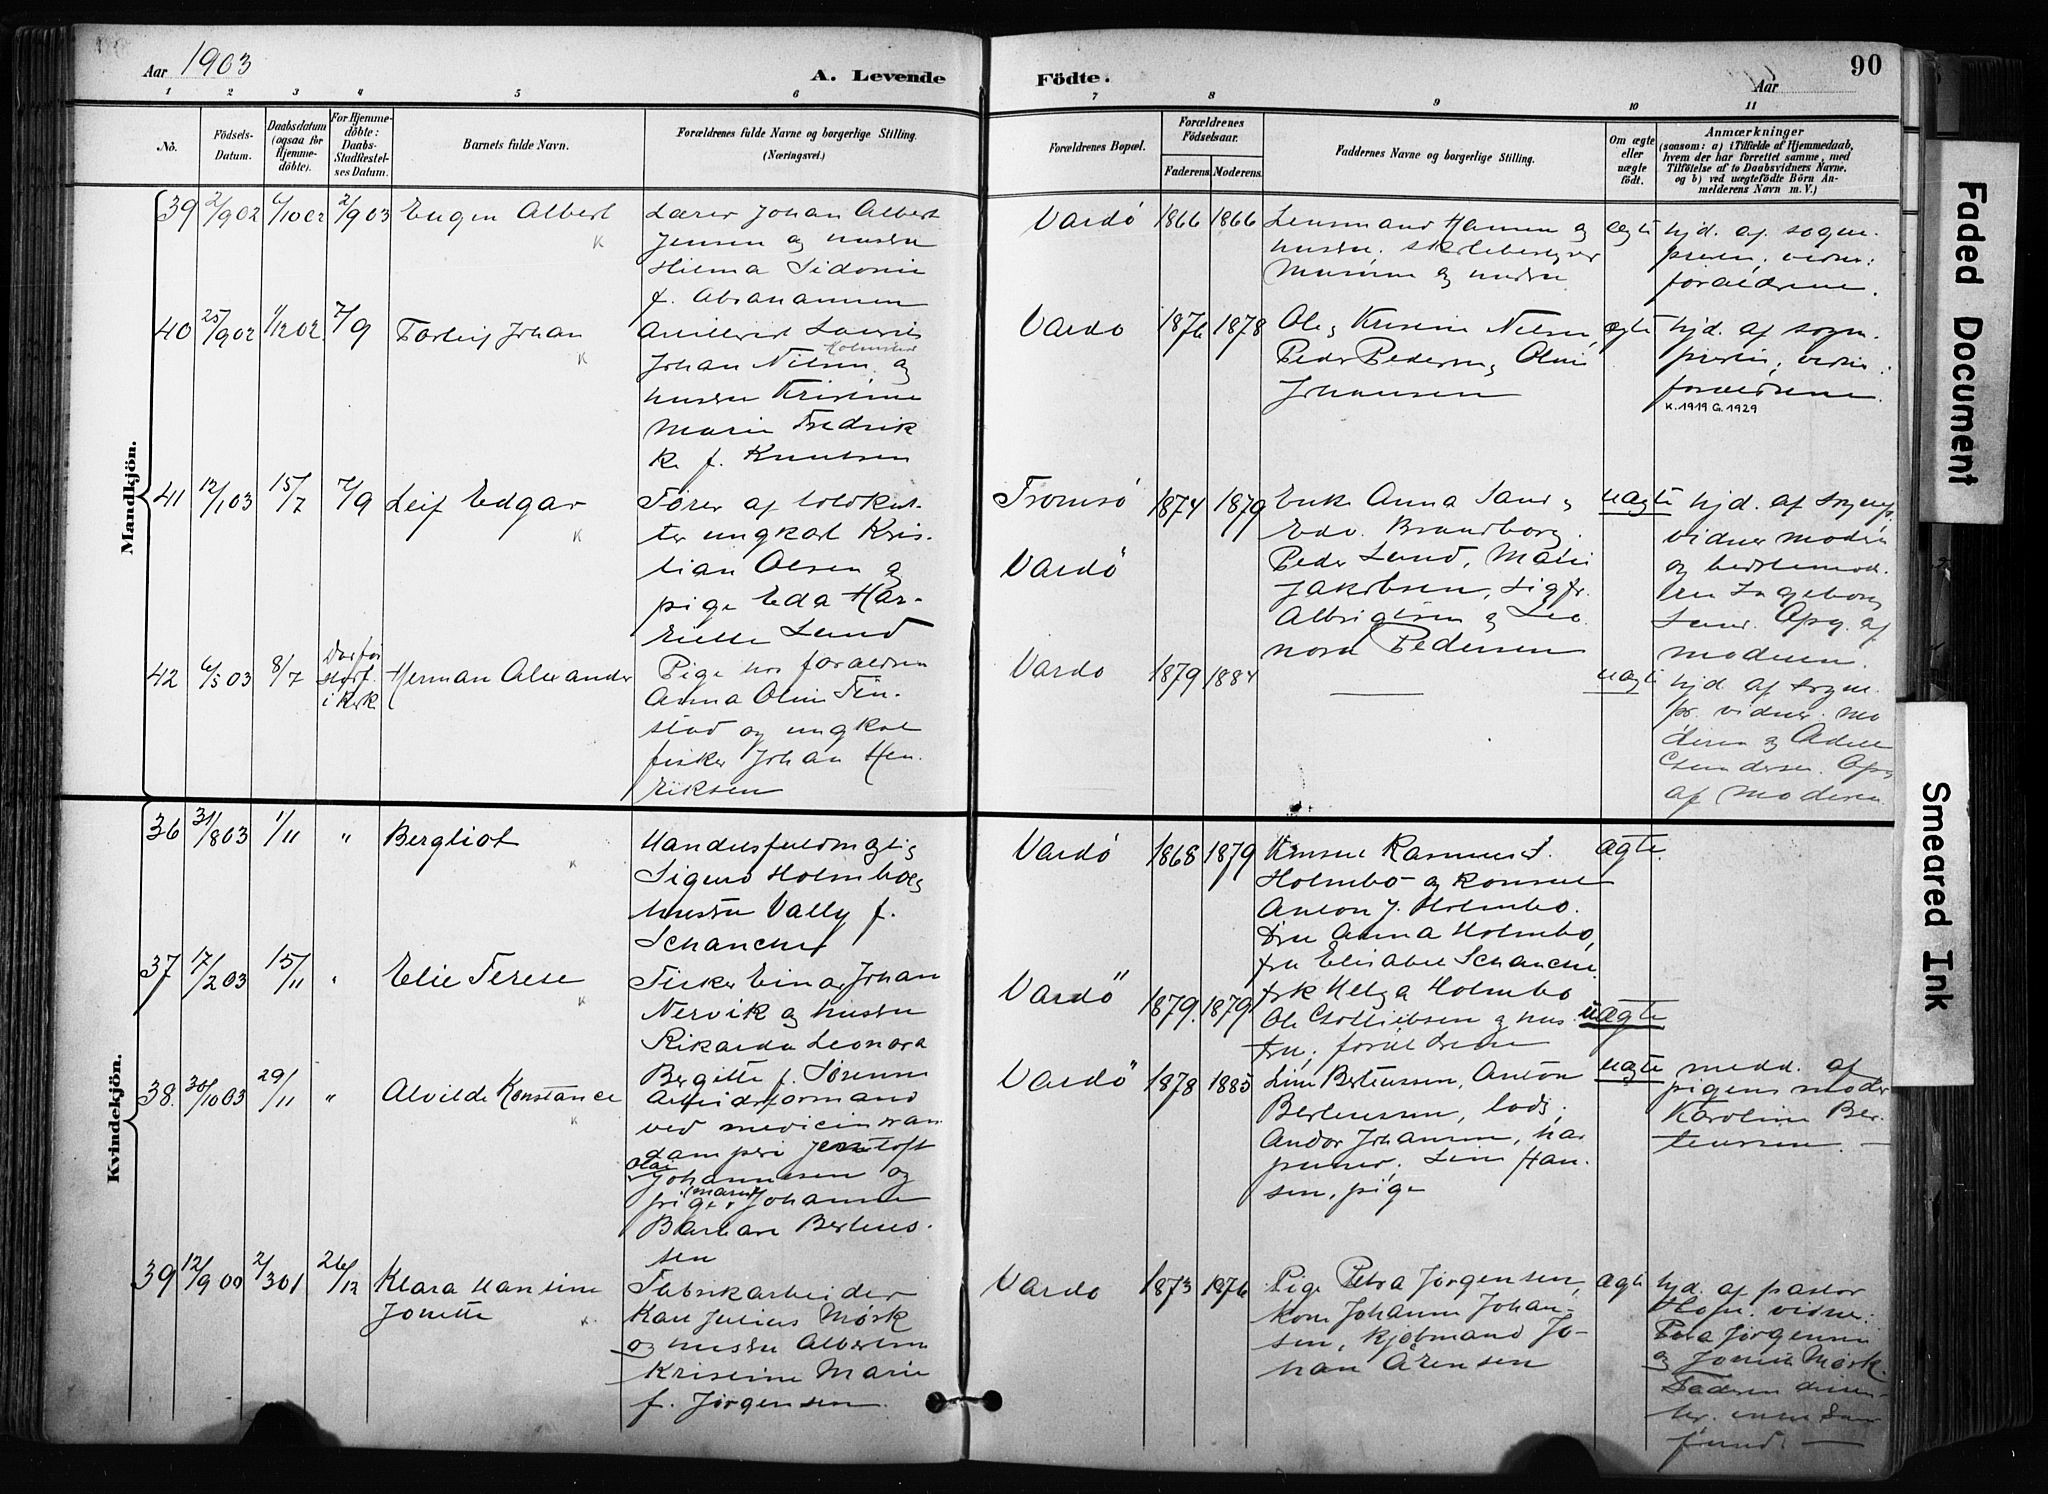 Aar 1903
A. Levende
Födte.
Aar
90
1 2 3 4 5 6 7 8 9 10 11
No.
Födsels-
Datum.
Daabsdatum
(ogsaa for
Hjemme-
döbte).
For Hjemme-
döbte:
Daabs-
Stadfæstel-
ses Datum.
Barnets fulde Navn.
Forældrenes fulde Navne og borgerlige Stilling.
(Næringsvei.)
Forældrenes Bopæl.
Forældrenes
Födselsaar.
Faderens. Moderens.
Faddernes Navne og borgerlige Stilling.
Om ægte
eller
uægte
födt.
Anmærkninger
(saasom: a) i Tilfælde af Hjemmedaab,
hvem der har forrettet samme, med
Tilföielse af to Daabsvidners Navne,
og b) ved uægtefödte Börn An-
melderens Navn m. V.)
Mandkjön.
39 2/9 02 6/10 02 2/9 03 Eugen Albert
K
Lærer Johan Albert
Jensen og hustru
Hilma Sidonie
f. Abrahamsen
Vardø 1866 1866
Lensmand Hansen og
hustru,
og hustru
ægte
hjd. af sogne-
presten, vidner:
forældrene.
40 25/9 02 1/12 02 7/9 Torleif Johan
K
Laurits
Holmstad
Johan Nilsen og
hustru Kristine
Marie Fredrik
ke f. Knutsen
Vardø 1876 1878
Ole og Kristine Nilsen,
Peder Pedersen og Oline
Johansen
ægte
hjd. af sogne-
presten, vidner:
forældrene.
K. 1919 G. 1929
41 12/1 03 15/7 7/9 Leif Edgar
K
Fører af toldkut-
ter ungkarl Kris-
tian Olsen og
pige Eda Har-
riette Lund
Tromsø
Vardø
1874 1879
Enke Anna Sand og
Edv. Brandborg.
Peder Lund, Mali
Jakobsen, Sigfr.
Albrigtsen og Leo-
nora Pedersen
uægte
hjd. af sognepr.
vidner moderen
og bedstemod-
ren Ingeborg
Lund. Opg. af
moderen.
42 6/5 03 8/7
i kirk
Herman Alexander
Pige hos forældrene
Anna Oline Fin-
stad og ungkarl
fisker Johan Hen
riksen
Vardø 1879 1884
uægte
hjd. af sogne-
pr. vidner: mo
deren og Adele
Opg
af moderen
Kvindekjön.
36 31/8 03 1/11 " Bergliot
K
Handelsfuldmægtig
Sigurd Holmboe og
hustru Vally f.
Schanche
Vardø 1868 1879
Konsul Rasmus I.
Holmbo og konsul
Anton J. Holmbo.
Fru Anna Holmbo,
fru Elisabet Schanche.
frk Helga Holmbo
ægte.
37 17/2 03 15/11 " Elie Terese
K
Fisker Einar Johan
Nervik og hustru
Rikarda Leonora
Bergitte f. Sørensen
Vardø 1879. 1879
Ole Gottliebsen og hus-
tru; forældrene
uægte
38. 30/10 03 29/11 " Alvilde Konstance
K
Arbeidsformand
ved medicintran
damperi Jentoft
Olai
Johannesen og
(Marie)
pige Johanne
Barbara Berteus-
sen
Vardø 1878 1885
Line Berteussen, Anton
Berteussen, lods;
Andor Johansen, har
puner; Line Han-
sen, pige
uægte
medd. af
pigens moder
Karoline Ber-
teussen. —
39 12/9 00 2/3 01 26/12 Klara Hansine
Jonette
K.
Fabrikarbeider
Karl Julius Mørk
og hustru Albertine
Kristine Marie
f. Jørgensen.
Vardø 1873 1876
Pige Petra Jørgensen,
kone Johanne Johan-
sen, kjøbmand Jo-
han Arensen
ægte
hjd. af pastor
Hofn. vidne:
Petra Jørgensen
og Jonette Mørk.
Faderen dissen-
ter. —
Faded Document
Smeared Ink